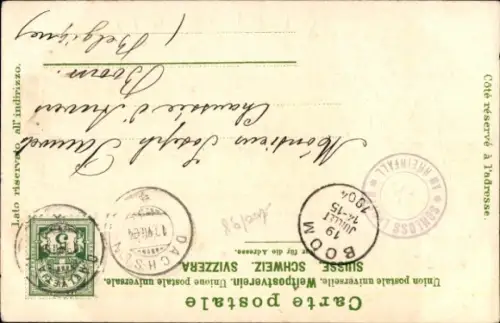 Carte postale
Union postale universelle. Weltpostverein. Unione postale universale.
SUISSE. SCHWEIZ. SVIZZERA
Nur für die Adresse.
Côté réservé à l'adresse.
Lato riservato all'indirizzo.
BOOM
19
JUILLET
14-15
1904
DACHSEN
SCHLOSS L
RHEINFALL
5
Monsieur Joseph
Chaussée d'Anvers
Boom.
(Belgique)